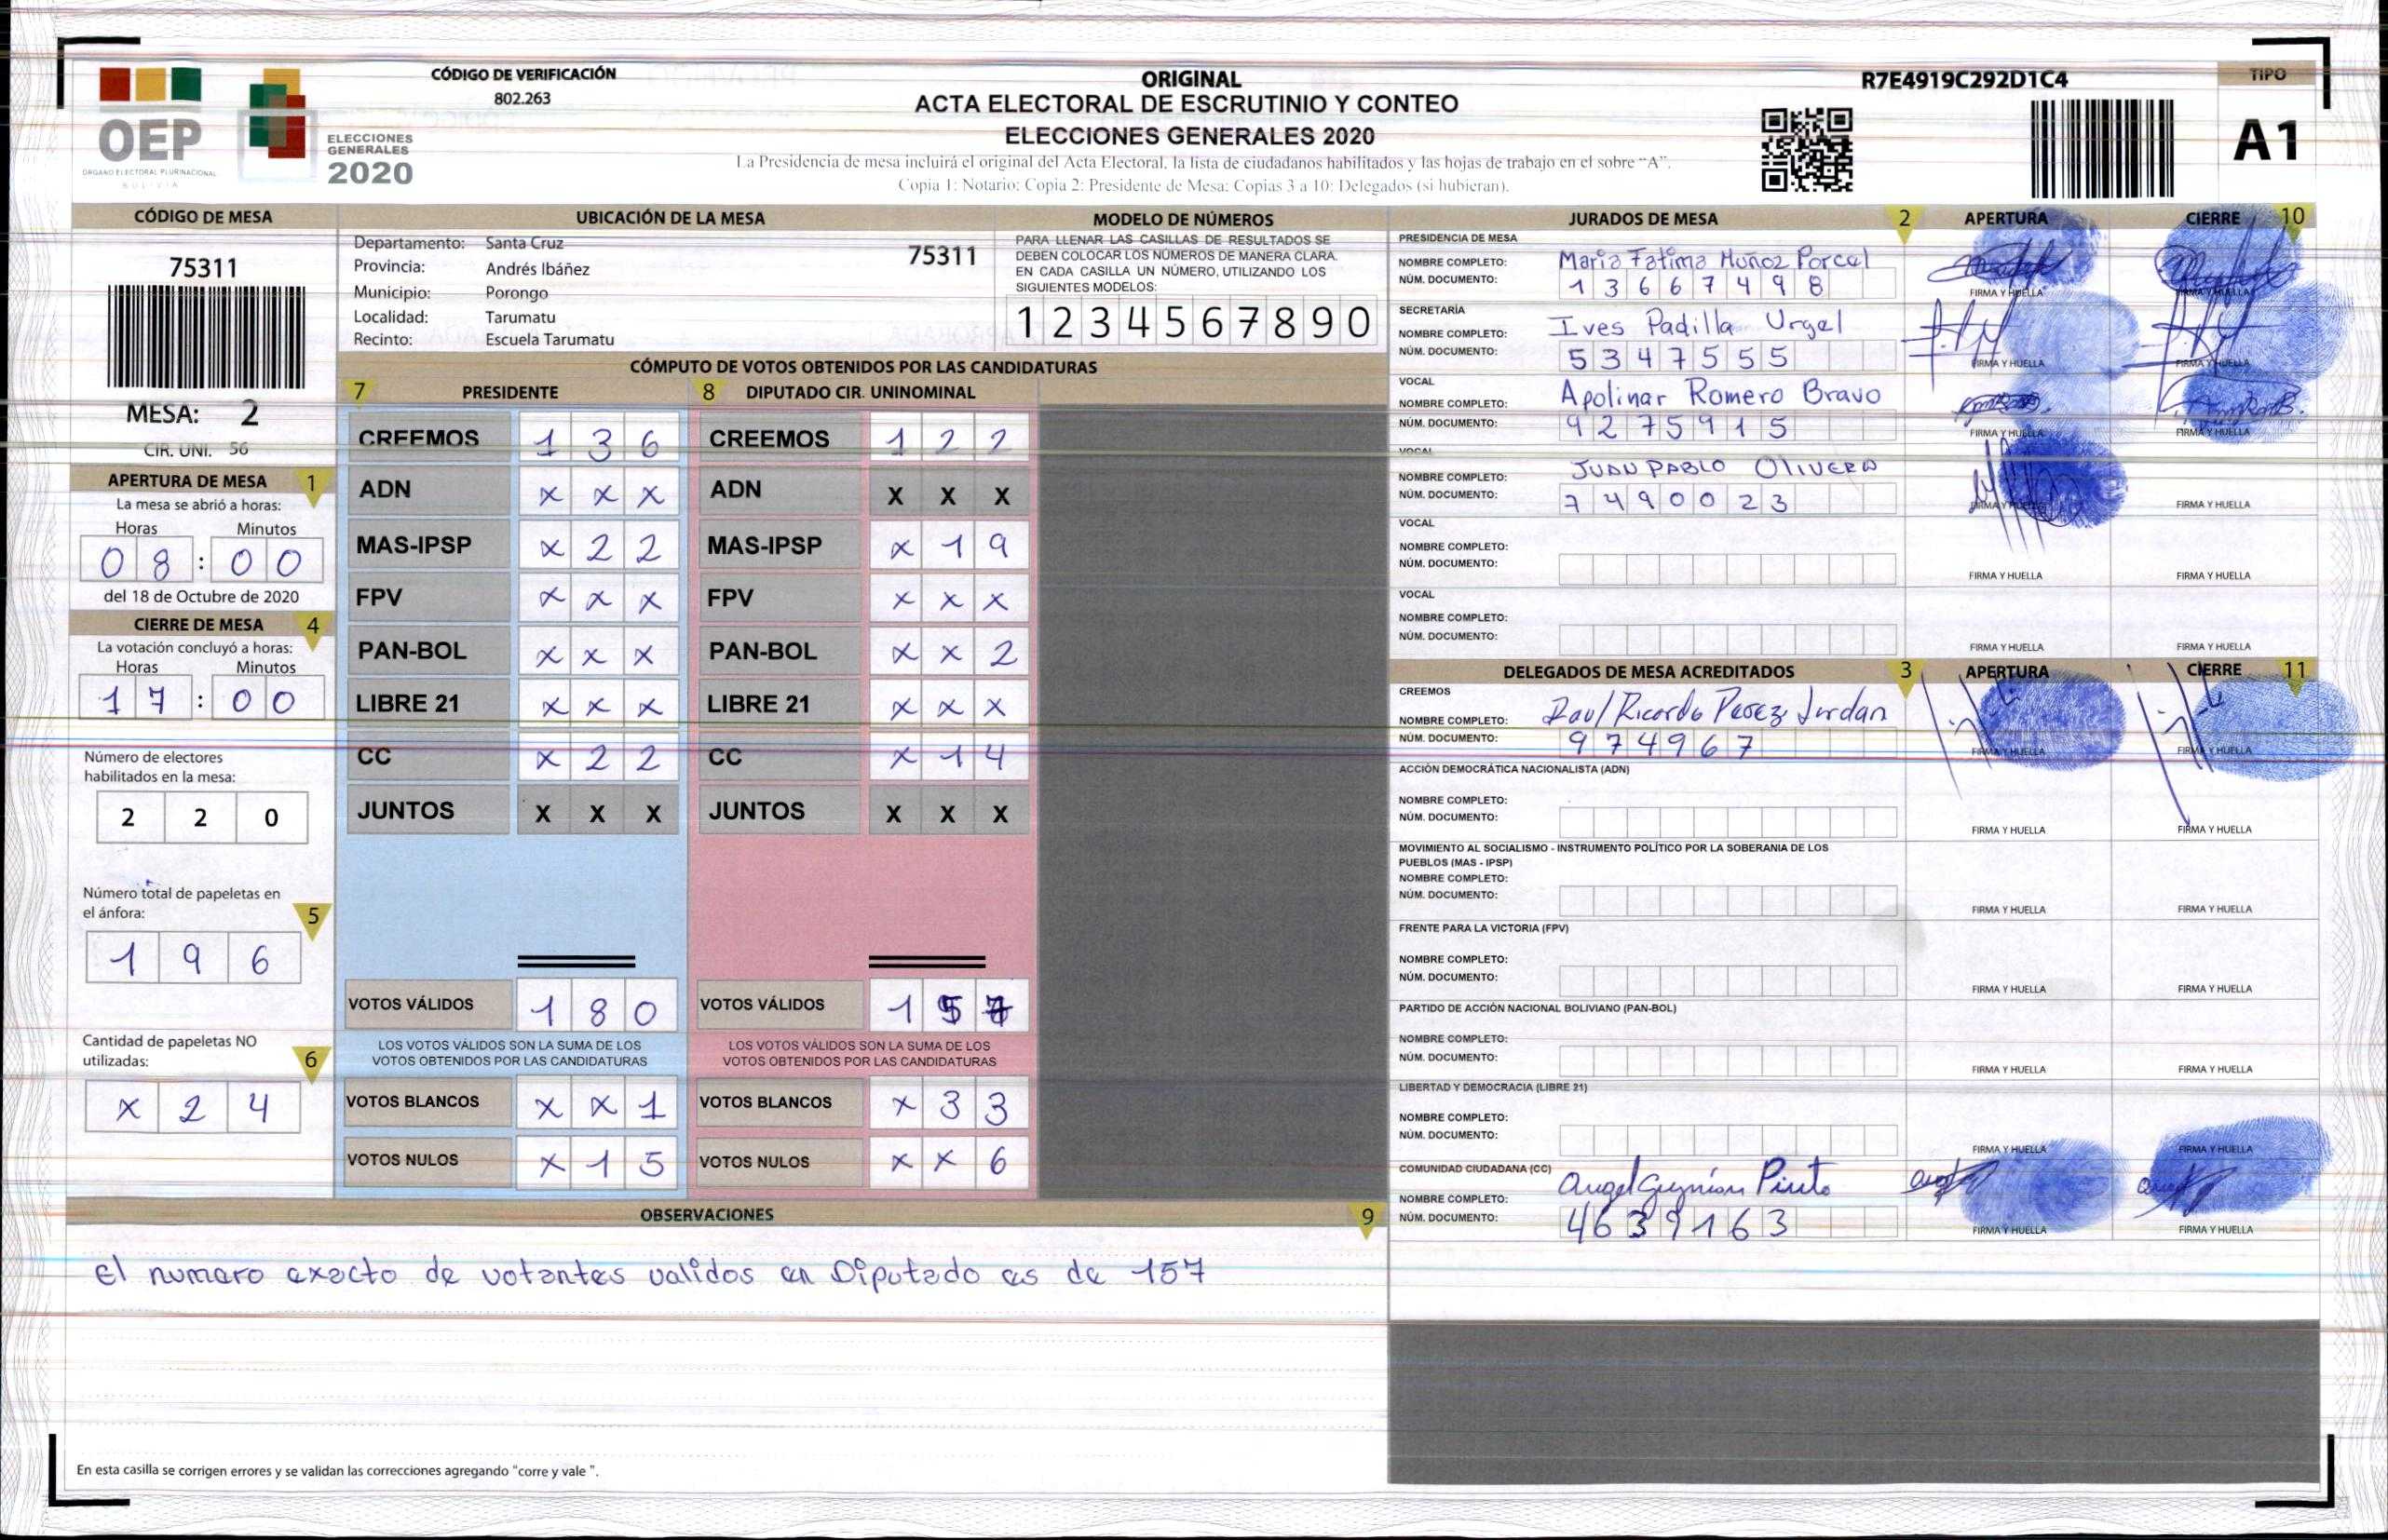 CÓDIGO DE VERIFICACIÓN
802.263
OEP
ÓRGANO ELECTORAL PLURINACIONAL
BOLIVIA
ELECCIONES
GENERALES
2020
ORIGINAL
ACTA ELECTORAL DE ESCRUTINIO Y CONTEO
ELECCIONES GENERALES 2020
La Presidencia de mesa incluirá el original del Acta Electoral, la lista de ciudadanos habilitados y las hojas de trabajo en el sobre "A".
Copia 1: Notario; Copia 2: Presidente de Mesa; Copias 3 a 10: Delegados (si hubieran).
R7E4919C292D1C4
TIPO
A1
CÓDIGO DE MESA
75311
MESA: 2
CIR. UNI. 56
APERTURA DE MESA 1
La mesa se abrió a horas:
Horas Minutos
0 8 : 0 0
del 18 de Octubre de 2020
CIERRE DE MESA 4
La votación concluyó a horas:
Horas Minutos
1 7 : 0 0
Número de electores
habilitados en la mesa:
2 2 0
Número total de papeletas en
el ánfora: 5
1 9 6
Cantidad de papeletas NO
utilizadas: 6
X 2 4
UBICACIÓN DE LA MESA
Departamento: Santa Cruz 75311
Provincia: Andrés Ibáñez
Municipio: Porongo
Localidad: Tarumatu
Recinto: Escuela Tarumatu
MODELO DE NÚMEROS
PARA LLENAR LAS CASILLAS DE RESULTADOS SE
DEBEN COLOCAR LOS NÚMEROS DE MANERA CLARA.
EN CADA CASILLA UN NÚMERO, UTILIZANDO LOS
SIGUIENTES MODELOS:
1 2 3 4 5 6 7 8 9 0
CÓMPUTO DE VOTOS OBTENIDOS POR LAS CANDIDATURAS
7 PRESIDENTE 8 DIPUTADO CIR. UNINOMINAL
CREEMOS 1 3 6 CREEMOS 1 2 2
ADN X X X ADN X X X
MAS-IPSP X 2 2 MAS-IPSP X 1 9
FPV X X X FPV X X X
PAN-BOL X X X PAN-BOL X X 2
LIBRE 21 X X X LIBRE 21 X X X
CC X 2 2 CC X 1 4
JUNTOS X X X JUNTOS X X X
VOTOS VÁLIDOS 1 8 0 VOTOS VÁLIDOS 1 5 7
LOS VOTOS VÁLIDOS SON LA SUMA DE LOS LOS VOTOS VÁLIDOS SON LA SUMA DE LOS
VOTOS OBTENIDOS POR LAS CANDIDATURAS VOTOS OBTENIDOS POR LAS CANDIDATURAS
VOTOS BLANCOS X X 1 VOTOS BLANCOS X 3 3
VOTOS NULOS X 1 5 VOTOS NULOS X X 6
OBSERVACIONES 9
El numero exacto de votantes validos en Diputado es de 157
En esta casilla se corrigen errores y se validan las correcciones agregando "corre y vale ".
JURADOS DE MESA 2 APERTURA CIERRE 10
PRESIDENCIA DE MESA
NOMBRE COMPLETO: Maria Fatima Muñoz Porcel
NÚM. DOCUMENTO: 1 3 6 6 7 4 9 8
FIRMA Y HUELLA FIRMA Y HUELLA
SECRETARÍA
NOMBRE COMPLETO: Ives Padilla Urgel
NÚM. DOCUMENTO: 5 3 4 7 5 5 5
FIRMA Y HUELLA FIRMA Y HUELLA
VOCAL
NOMBRE COMPLETO: Apolinar Romero Bravo
NÚM. DOCUMENTO: 9 2 7 5 9 1 5
FIRMA Y HUELLA FIRMA Y HUELLA
VOCAL
NOMBRE COMPLETO: JUAN PABLO OLIVERA
NÚM. DOCUMENTO: 7 4 9 0 0 2 3
FIRMA Y HUELLA FIRMA Y HUELLA
VOCAL
NOMBRE COMPLETO:
NÚM. DOCUMENTO:
FIRMA Y HUELLA FIRMA Y HUELLA
VOCAL
NOMBRE COMPLETO:
NÚM. DOCUMENTO:
FIRMA Y HUELLA FIRMA Y HUELLA
DELEGADOS DE MESA ACREDITADOS 3 APERTURA CIERRE 11
CREEMOS
NOMBRE COMPLETO: Raul Ricardo Perez Jordan
NÚM. DOCUMENTO: 9 7 4 9 6 7
FIRMA Y HUELLA FIRMA Y HUELLA
ACCIÓN DEMOCRÁTICA NACIONALISTA (ADN)
NOMBRE COMPLETO:
NÚM. DOCUMENTO:
FIRMA Y HUELLA FIRMA Y HUELLA
MOVIMIENTO AL SOCIALISMO - INSTRUMENTO POLÍTICO POR LA SOBERANIA DE LOS
PUEBLOS (MAS - IPSP)
NOMBRE COMPLETO:
NÚM. DOCUMENTO:
FIRMA Y HUELLA FIRMA Y HUELLA
FRENTE PARA LA VICTORIA (FPV)
NOMBRE COMPLETO:
NÚM. DOCUMENTO:
FIRMA Y HUELLA FIRMA Y HUELLA
PARTIDO DE ACCIÓN NACIONAL BOLIVIANO (PAN-BOL)
NOMBRE COMPLETO:
NÚM. DOCUMENTO:
FIRMA Y HUELLA FIRMA Y HUELLA
LIBERTAD Y DEMOCRACIA (LIBRE 21)
NOMBRE COMPLETO:
NÚM. DOCUMENTO:
FIRMA Y HUELLA FIRMA Y HUELLA
COMUNIDAD CIUDADANA (CC)
NOMBRE COMPLETO: Angel Guzmán Pinto
NÚM. DOCUMENTO: 4 6 3 9 1 6 3
FIRMA Y HUELLA FIRMA Y HUELLA